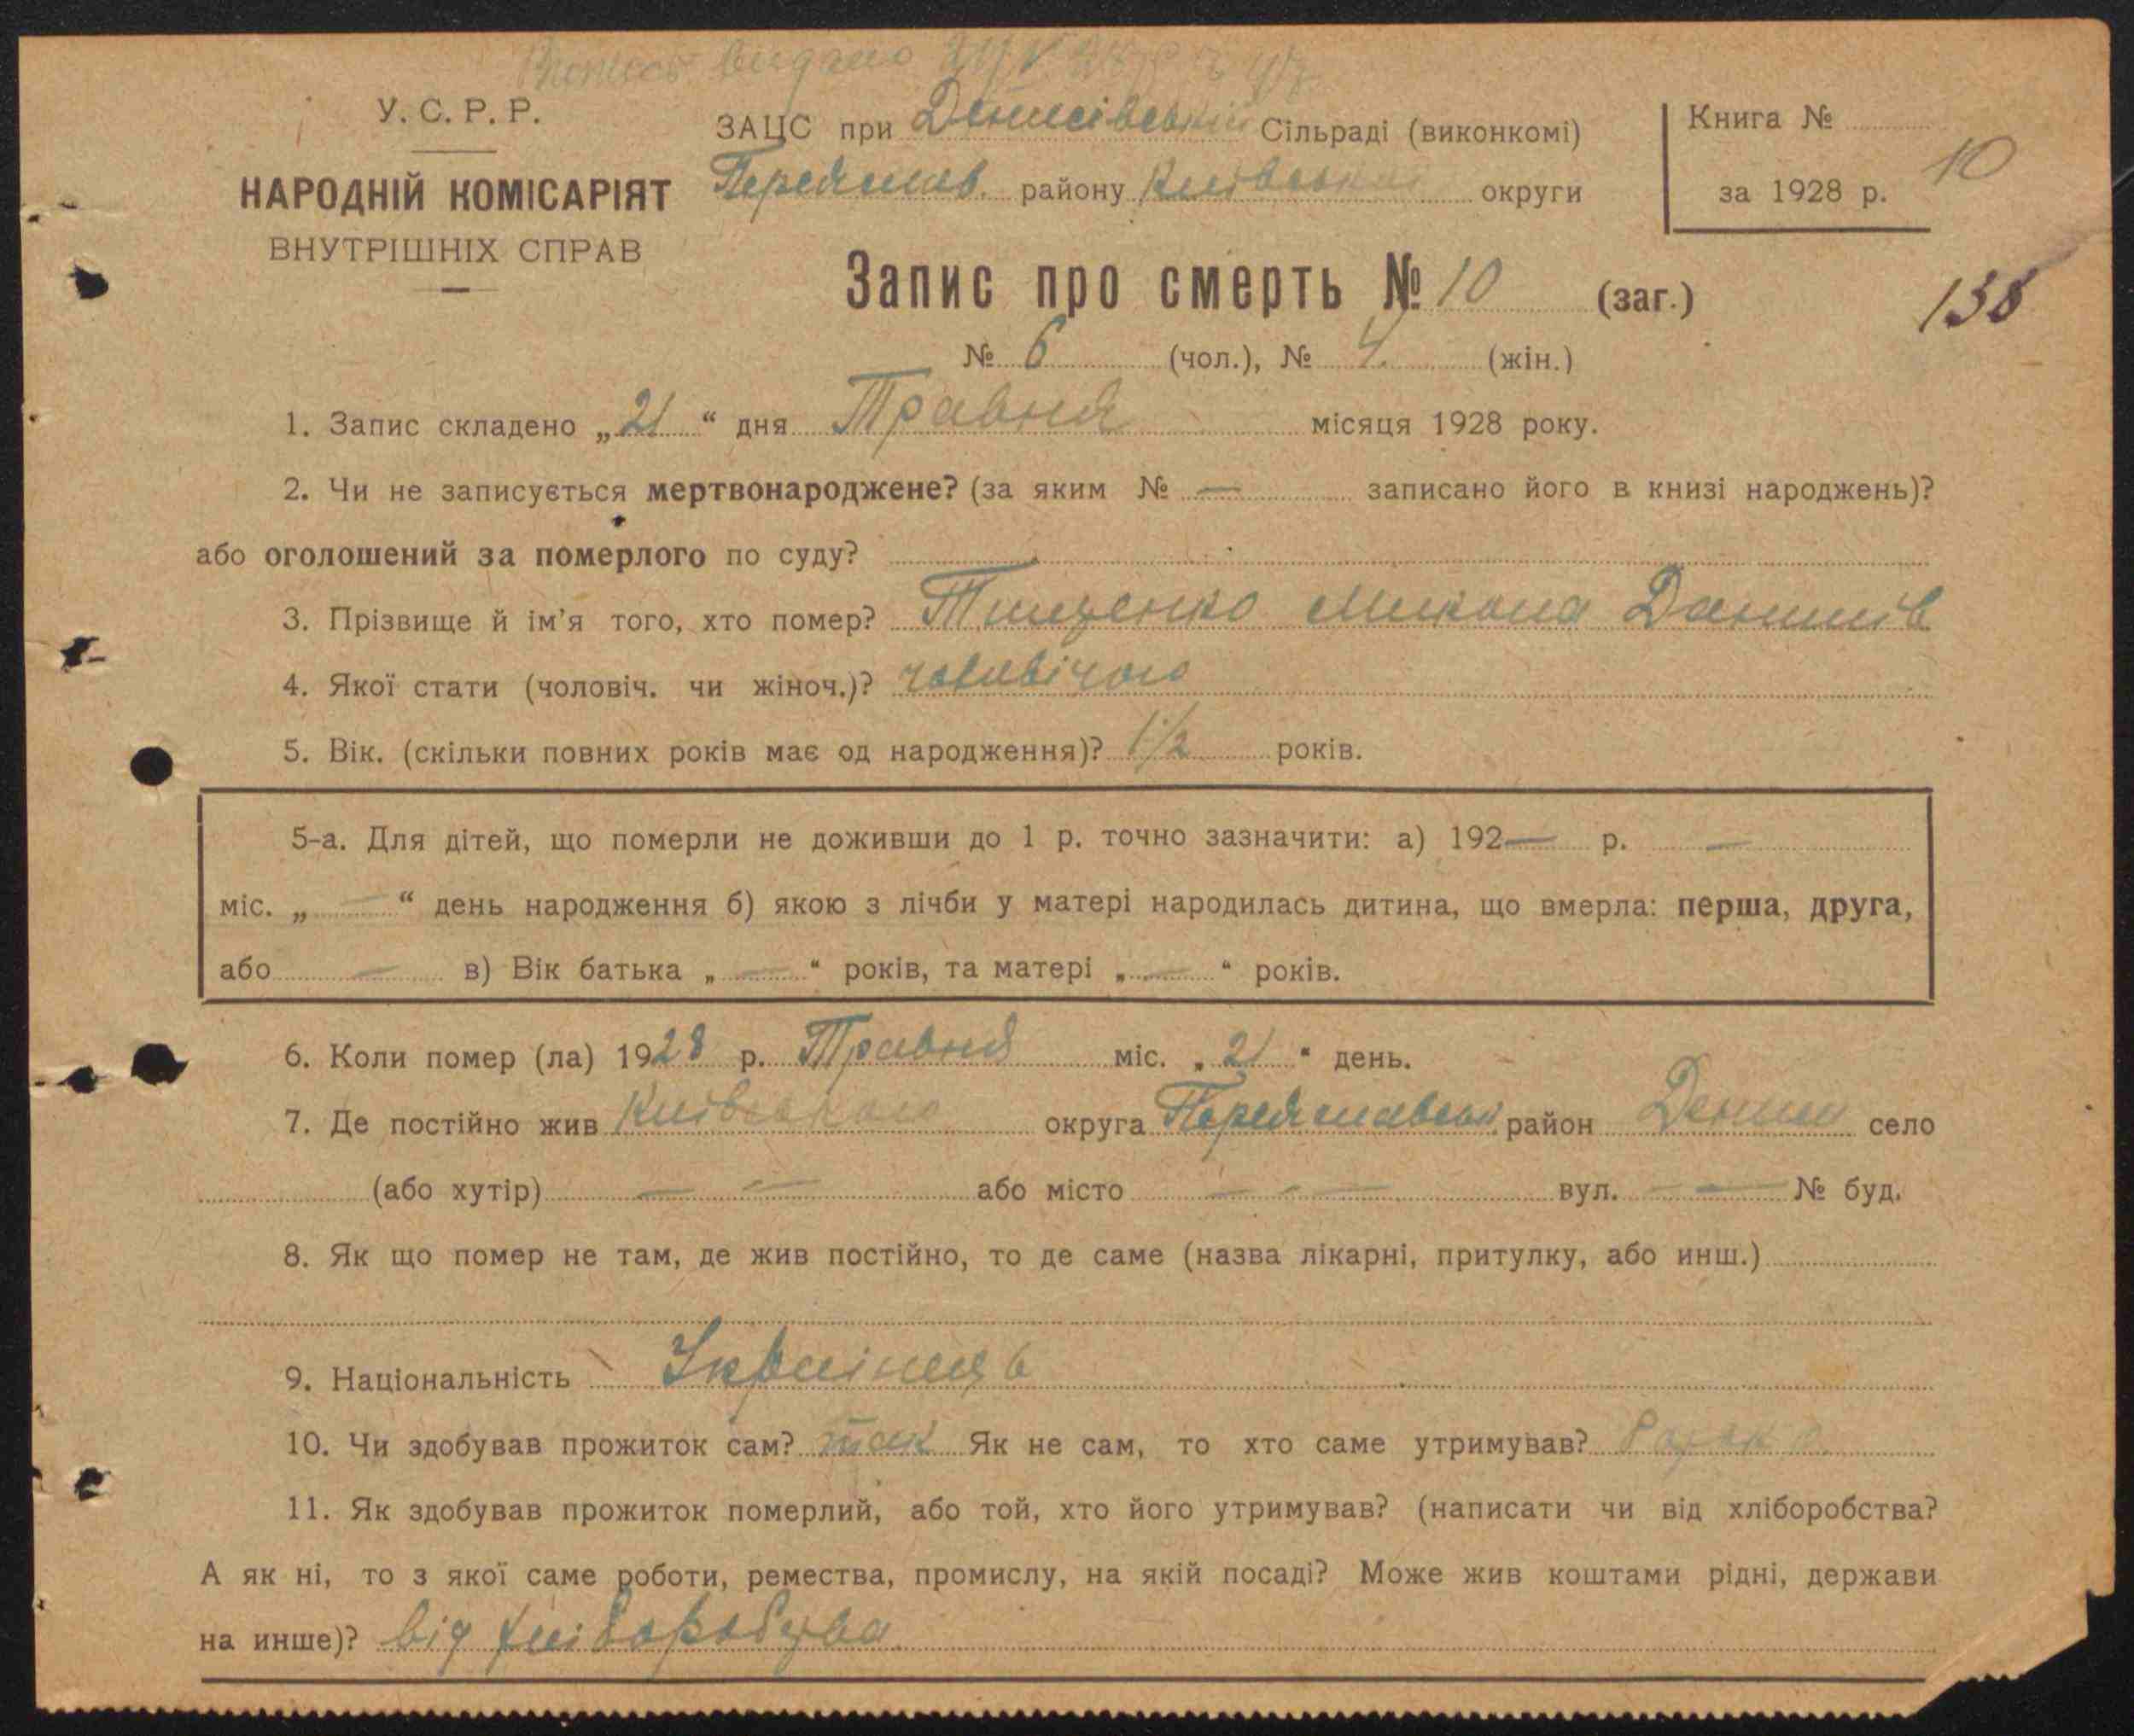 видано
У. С. Р. Р.
НАРОДНІЙ КОМІСАРІЯТ
ВНУТРІШНІХ СПРАВ
ЗАЦС при Денисівській Сільраді (виконкомі)
Переяслав. району Київської округи
Книга № 10
за 1928 р.
138
Запис про смерть № 10 (заг.)
№ 6 (чол.), № 4. (жін.)
1. Запис складено „21“ дня Травня місяця 1928 року.
2. Чи не записується мертвонароджене? (за яким № — записано його в книзі народжень)?
або оголошений за померлого по суду?
3. Прізвище й ім'я того, хто помер? Тищенко Микола Данилів
4. Якої стати (чоловіч. чи жіноч.)? чоловічого
5. Вік. (скільки повних років має од народження)? 1½ років.
5-а. Для дітей, що померли не доживши до 1 р. точно зазначити: а) 192— р. —
міс. „—“ день народження б) якою з лічби у матері народилась дитина, що вмерла: перша, друга,
або — в) Вік батька „—“ років, та матері „—“ років.
6. Коли помер (ла) 1928 р. Травня міс. „21“ день.
7. Де постійно жив Київського округа Переяславськ. район Дениси село
(або хутір) — — або місто — - — вул. — — № буд.
8. Як що помер не там, де жив постійно, то де саме (назва лікарні, притулку, або инш.)
9. Національність Українець
10. Чи здобував прожиток сам? так Як не сам, то хто саме утримував?
11. Як здобував прожиток померлий, або той, хто його утримував? (написати чи від хліборобства?
А як ні, то з якої саме роботи, ремества, промислу, на якій посаді? Може жив коштами рідні, держави
на инше)? від хліборобства.